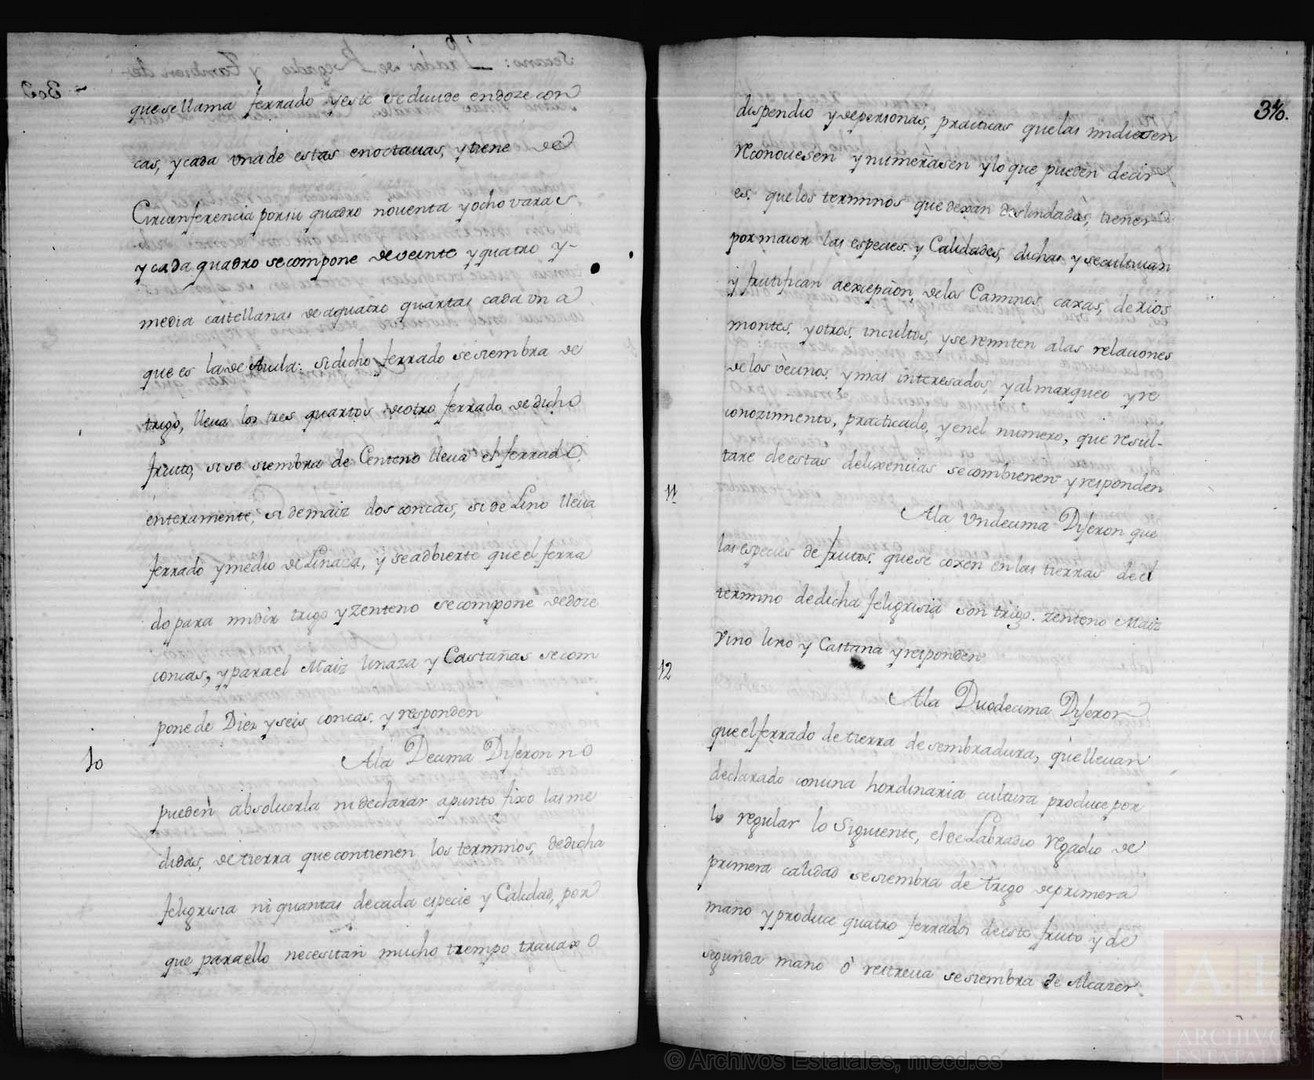 que se llama ferrado y este se diuide en doze con
cas, y cada vna de estas en octauas, y tiene de
Circunferencia por su quadro nouenta y ocho varas
y cada quadro se compone de veinte y quatro y
media castellanas de a quatro quartas cada vna
que es la de Auila: si dicho ferrado se siembra de
trigo, lleua los tres quartos de otro ferrado de dicho
fruto, si se siembra de Centeno lleua el ferrado
enteramente, si de maiz dos concas, si de Lino lleua
ferrado y medio de Linaza, y se adbierte que el ferra
do para midir trigo y zenteno se compone de doze
concas, y para el Maiz linaza y Castañas se com
pone de Diez y seis concas. y responden
10 A la Decima Dijeron no
pueden absoluerla ni declarar a punto fixo las me
didas, de tierra que contienen los terminos, de dicha
feligrisia ni quantas de cada especie y Calidad, por
que para ello necesitan mucho tiempo trauaxo
346.
dispendio y de personas, practicas que las midiesen
reconoziesen y numerasen y lo que pueden decir
es. que los terminos que dexan deslindados, tienen
por maior las especies, y Calidades, dichas y se cultiuan
y frutifican a excepcion, de los Caminos, caxas, de rios
montes, y otros, incultos, y se remiten a las relaciones
de los vecinos, y mas interesados, y al marqueo y re
conozimento, practicado, y en el numero, que resul-
tare de estas delixencias se combienen y responden
11 A la Vndecima Dijeron que
las especies de frutos. que se coxen en las tierras de el
termino de dicha feligrisia son trigo. zenteno Maiz
Vino lino y Castaña y responden
12 A la Duodecima Dijeron
que el ferrado de tierra de sembradura, que lleuan
declarado con una hordinaria cultura produce por
lo regular lo Siguiente, el de Labradio regadio de
primera calidad se siembra de trigo de primera
mano y produce quatro ferrados de este fruto y de
segunda mano o restreua se siembra de Alcazer
© Archivos Estatales, mecd.es
ARCHIVOS
ESTATALES